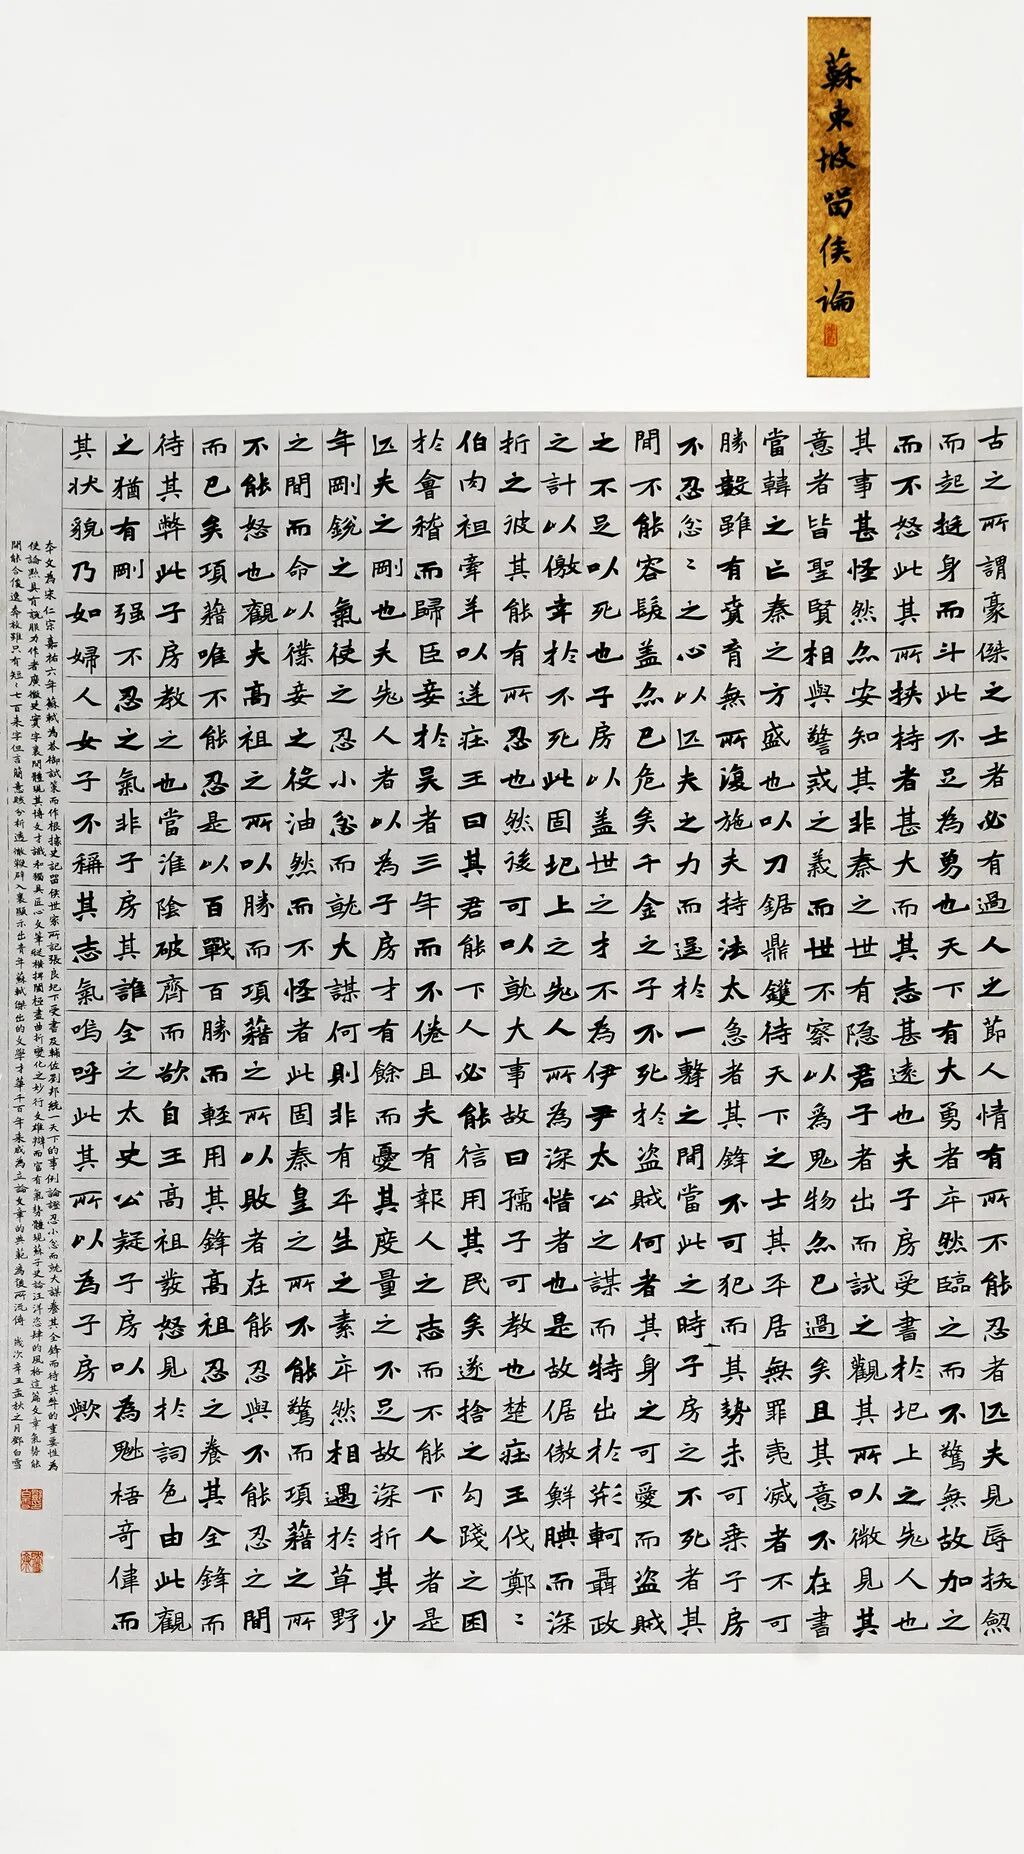 蘇東坡留侯論
古之所謂豪傑之士者必有過人之節人情有所不能忍者匹夫見辱拔劒
而起挺身而斗此不足為勇也天下有大勇者卒然臨之而不驚無故加之
而不怒此其所挾持者甚大而其志甚遠也夫子房受書於圯上之老人也
其事甚怪然亦安知其非秦之世有隱君子者出而試之觀其所以微見其
意者皆聖賢相與警惑之義而世不察以為鬼物亦已過矣且其意不在書
當韓之亡秦之方盛也以刀鋸鼎鑊待天下之士其平居無罪夷滅者不可
勝數雖有賁育無所復施夫持法太急者其鋒不可犯而其勢未可乘子房
不忍忿〻之心以匹夫之力而逞於一擊之間當此之時子房之不死者其
間不能容髮蓋亦已危矣千金之子不死於盜賊何者其身之可愛而盜賊
之不足以死也子房以蓋世之才不為伊尹太公之謀而特出於荊軻聶政
之計以僥幸於不死此固圯上之老人所為深惜者也是故倨傲鮮腆而深
折之彼其能有所忍也然後可以就大事故曰孺子可教也楚莊王伐鄭〻
伯肉袒牽羊以逆莊王曰其君能下人必能信用其民矣遂捨之勾踐之困
於會稽而歸臣妾於吳者三年而不倦且夫有報人之志而不能下人者是
匹夫之剛也夫老人者以為子房才有餘而憂其度量之不足故深折其少
年剛銳之氣使之忍小忿而就大謀何則非有平生之素卒然相遇於草野
之間而命以僕妾之役油然而不怪者此固秦皇之所不能驚而項藉之所
不能怒也觀夫高祖之所以勝而項藉之所以敗者在能忍與不能忍之間
而已矣項藉唯不能忍是以百戰百勝而輕用其鋒高祖忍之養其全鋒而
待其弊此子房教之也當淮陰破齊而欲自王高祖發怒見於詞色由此觀
之猶有剛强不忍之氣非子房其誰全之太史公疑子房以為魁梧奇偉而
其狀貌乃如婦人女子不稱其志氣嗚呼此其所以為子房歟
本文為宋仁宗嘉祐六年蘇軾為答御試策而作根據史記留侯世家所記張良圯下受書及輔佐劉邦統一天下的事例論證忍小忿而就大謀養其全鋒而待其弊的重要性為
使論點具有說服力作者廣徵史實字裏間體現其博文才識和獨具匠心文筆縱橫捭闔極盡曲折變化之妙行文雄辯而富有氣勢體現蘇子史論汪洋恣肆的風格這篇文章氣勢能
開能合俊逸奔放雖只有短〻七百來字但言簡意賅分析透徹鞭辟入裏顯示出青年蘇軾傑出的文學才華千百年來成為立論文章的典範為後所流傳 歲次辛丑孟秋之月鄧白雪